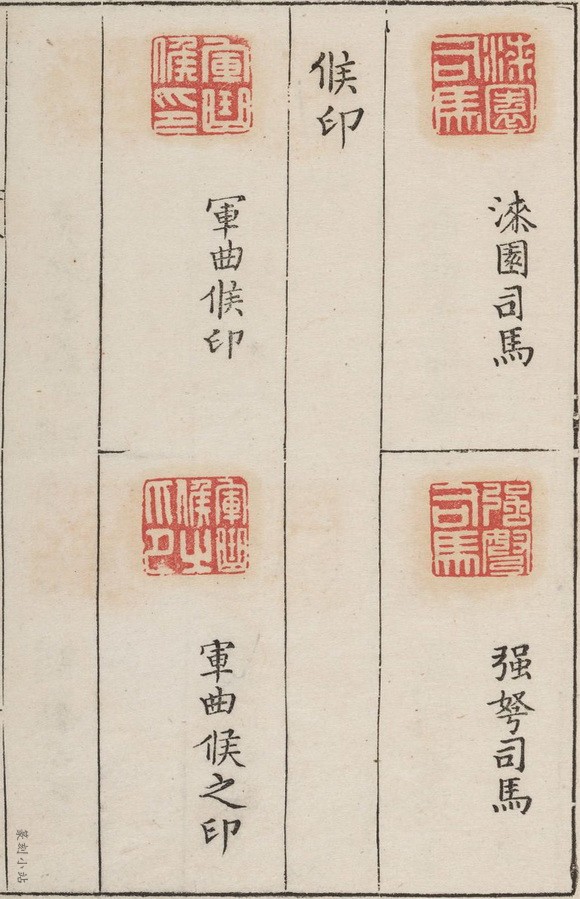 漆園司馬
漆園司馬
强弩司馬
强弩司馬
候印
軍曲候印
軍曲候印
軍曲候之印
軍曲候之印
篆刻小站